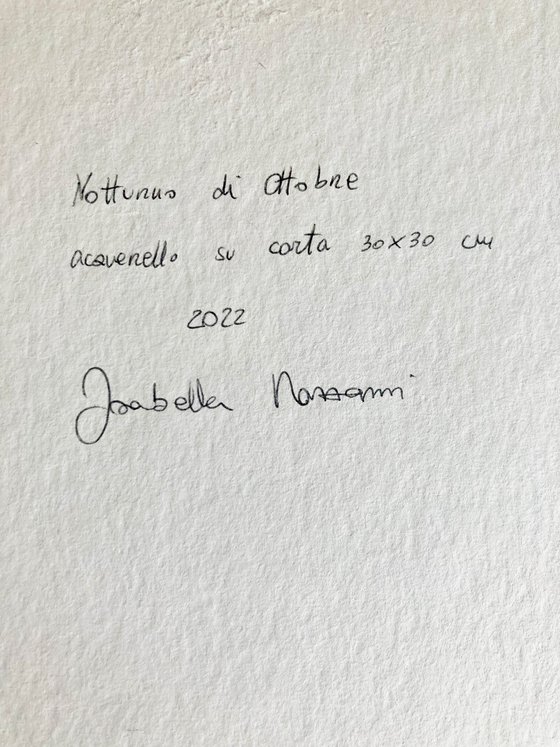 Notturno di Ottobre
acquerello su carta 30x30 cm
2022
Isabella